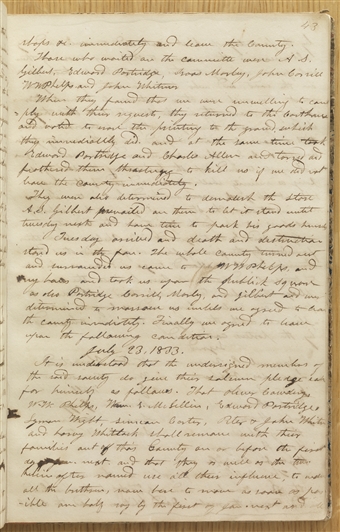 43
shops &c. immediately and leave the County.
Those who waited on the committee were A. S.
Gilbert, Edward Partridge, Isaac Morley, John Corrill
W W Phelps and John Whitmer.
When they found that we were unwilling to com
ply with their request, they returned to the Courthouse
and voted to raze the printing to the ground, which
they immediately did. and at the same time took
Edward Partridge and Charles Allen and tored and
feathered them threatening to kill us if we did not
leave the county immediately.
they were also determined to demolish the Store
A.S. Gilbert prevailed on them to let it stand until
tuesday next and have time to pack his goods himself
Tuesday arrived and death and destruction
stared us in the face. The whole county turned out
and surrounded us came to W W Phelps, and
my house and took us upon the public square
as also Partridge Corrill, Morly, and Gilbert and were
determined to massacre us unless we agreed to leave
the county immediately. Finally we agreed to leave
upon the following condition.
July 23, 1833.
It is understood that the undersigned members of
the society do give their solemn pledge each
for himself as follows. That Oliver Cowdery
W. W. Phelps, Wm E. McLellin, Edward Partridge
Lyman Wight, Simeon Carter, Peter & John Whitmer
and Harvy Whitlock shall remove with their
families out of this County on or before the first
next. and that they as well as the two
herein after named use all their influence to
all the bretheren now here to move as soon as pos
sible one half say by the first of January next and